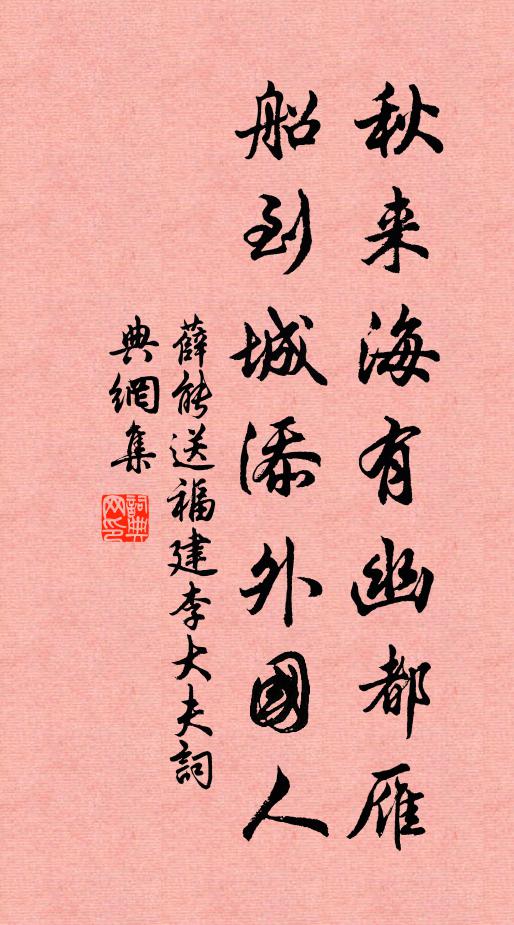 秋来海有幽都雁
船到城添外國人
薛能送福建李大夫詞
典網集
詞典网印